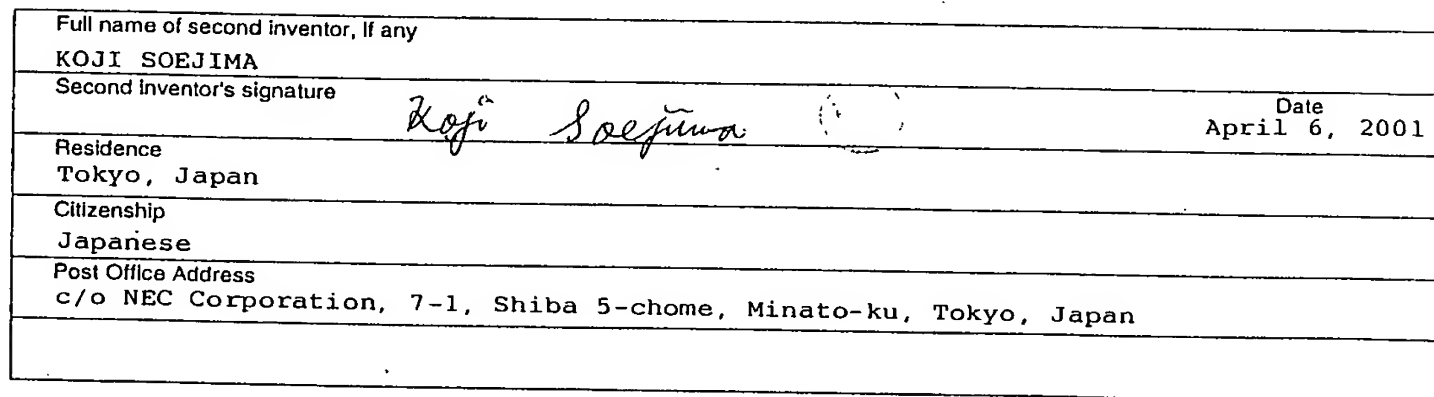 Full name of second inventor, If any
KOJI SOEJIMA
Second inventor's signature
Koji Soejima
Date
April 6, 2001
Residence
Tokyo, Japan
Citizenship
Japanese
Post Office Address
c/o NEC Corporation, 7-1, Shiba 5-chome, Minato-ku, Tokyo, Japan